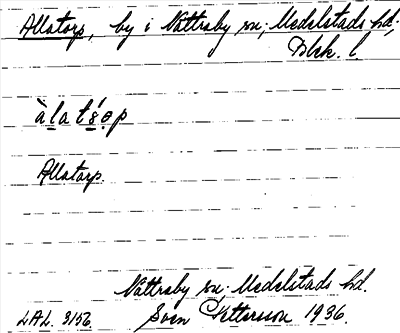 Allatorp, by i Nättraby sn; Medelstads hd;
Blek. l.
àlatśop
Allatorp.
Nättraby sn. Medelstads hd.
LAL. 3156. Sven Pettersson 1936.